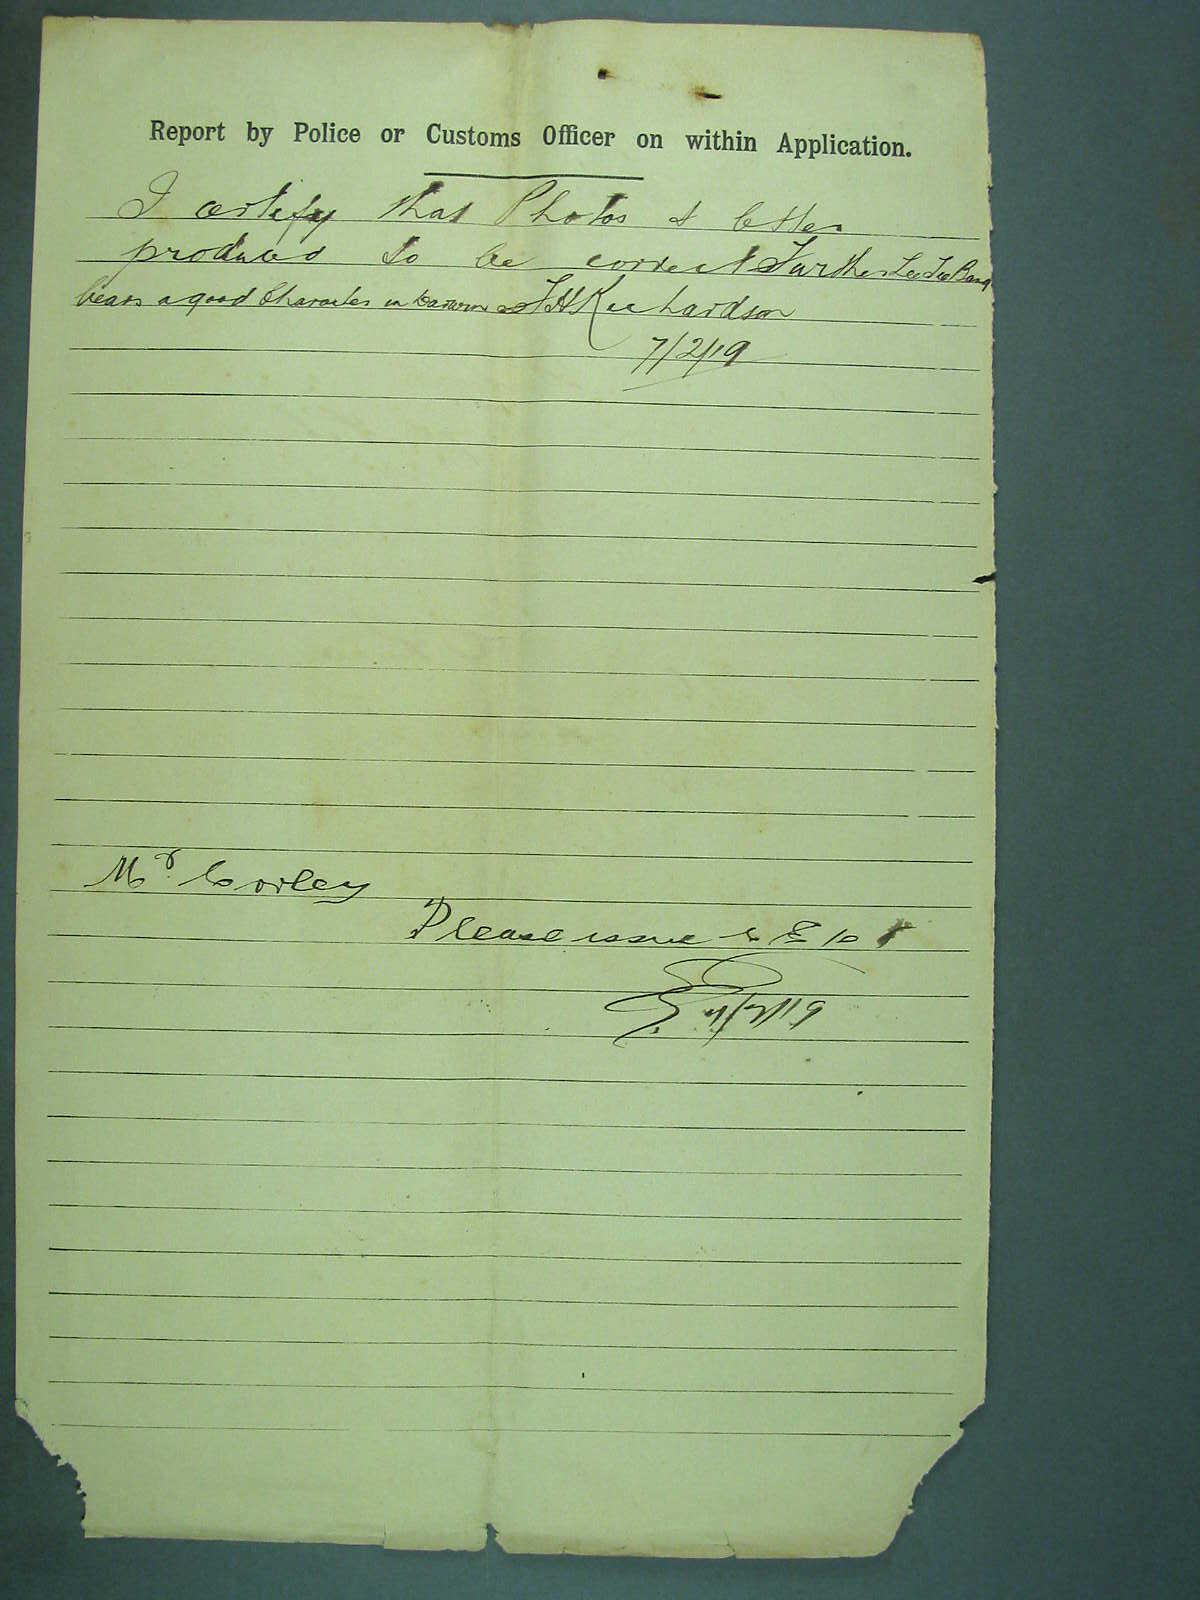 Report by Police or Customs Officer on within Application.
I certify that Photos & letter
produced to be correct Further Lee
bears a good Character in Darwin J H Richardson
7/2/19
Mr Corley
Please issue C E 10
7/2/19